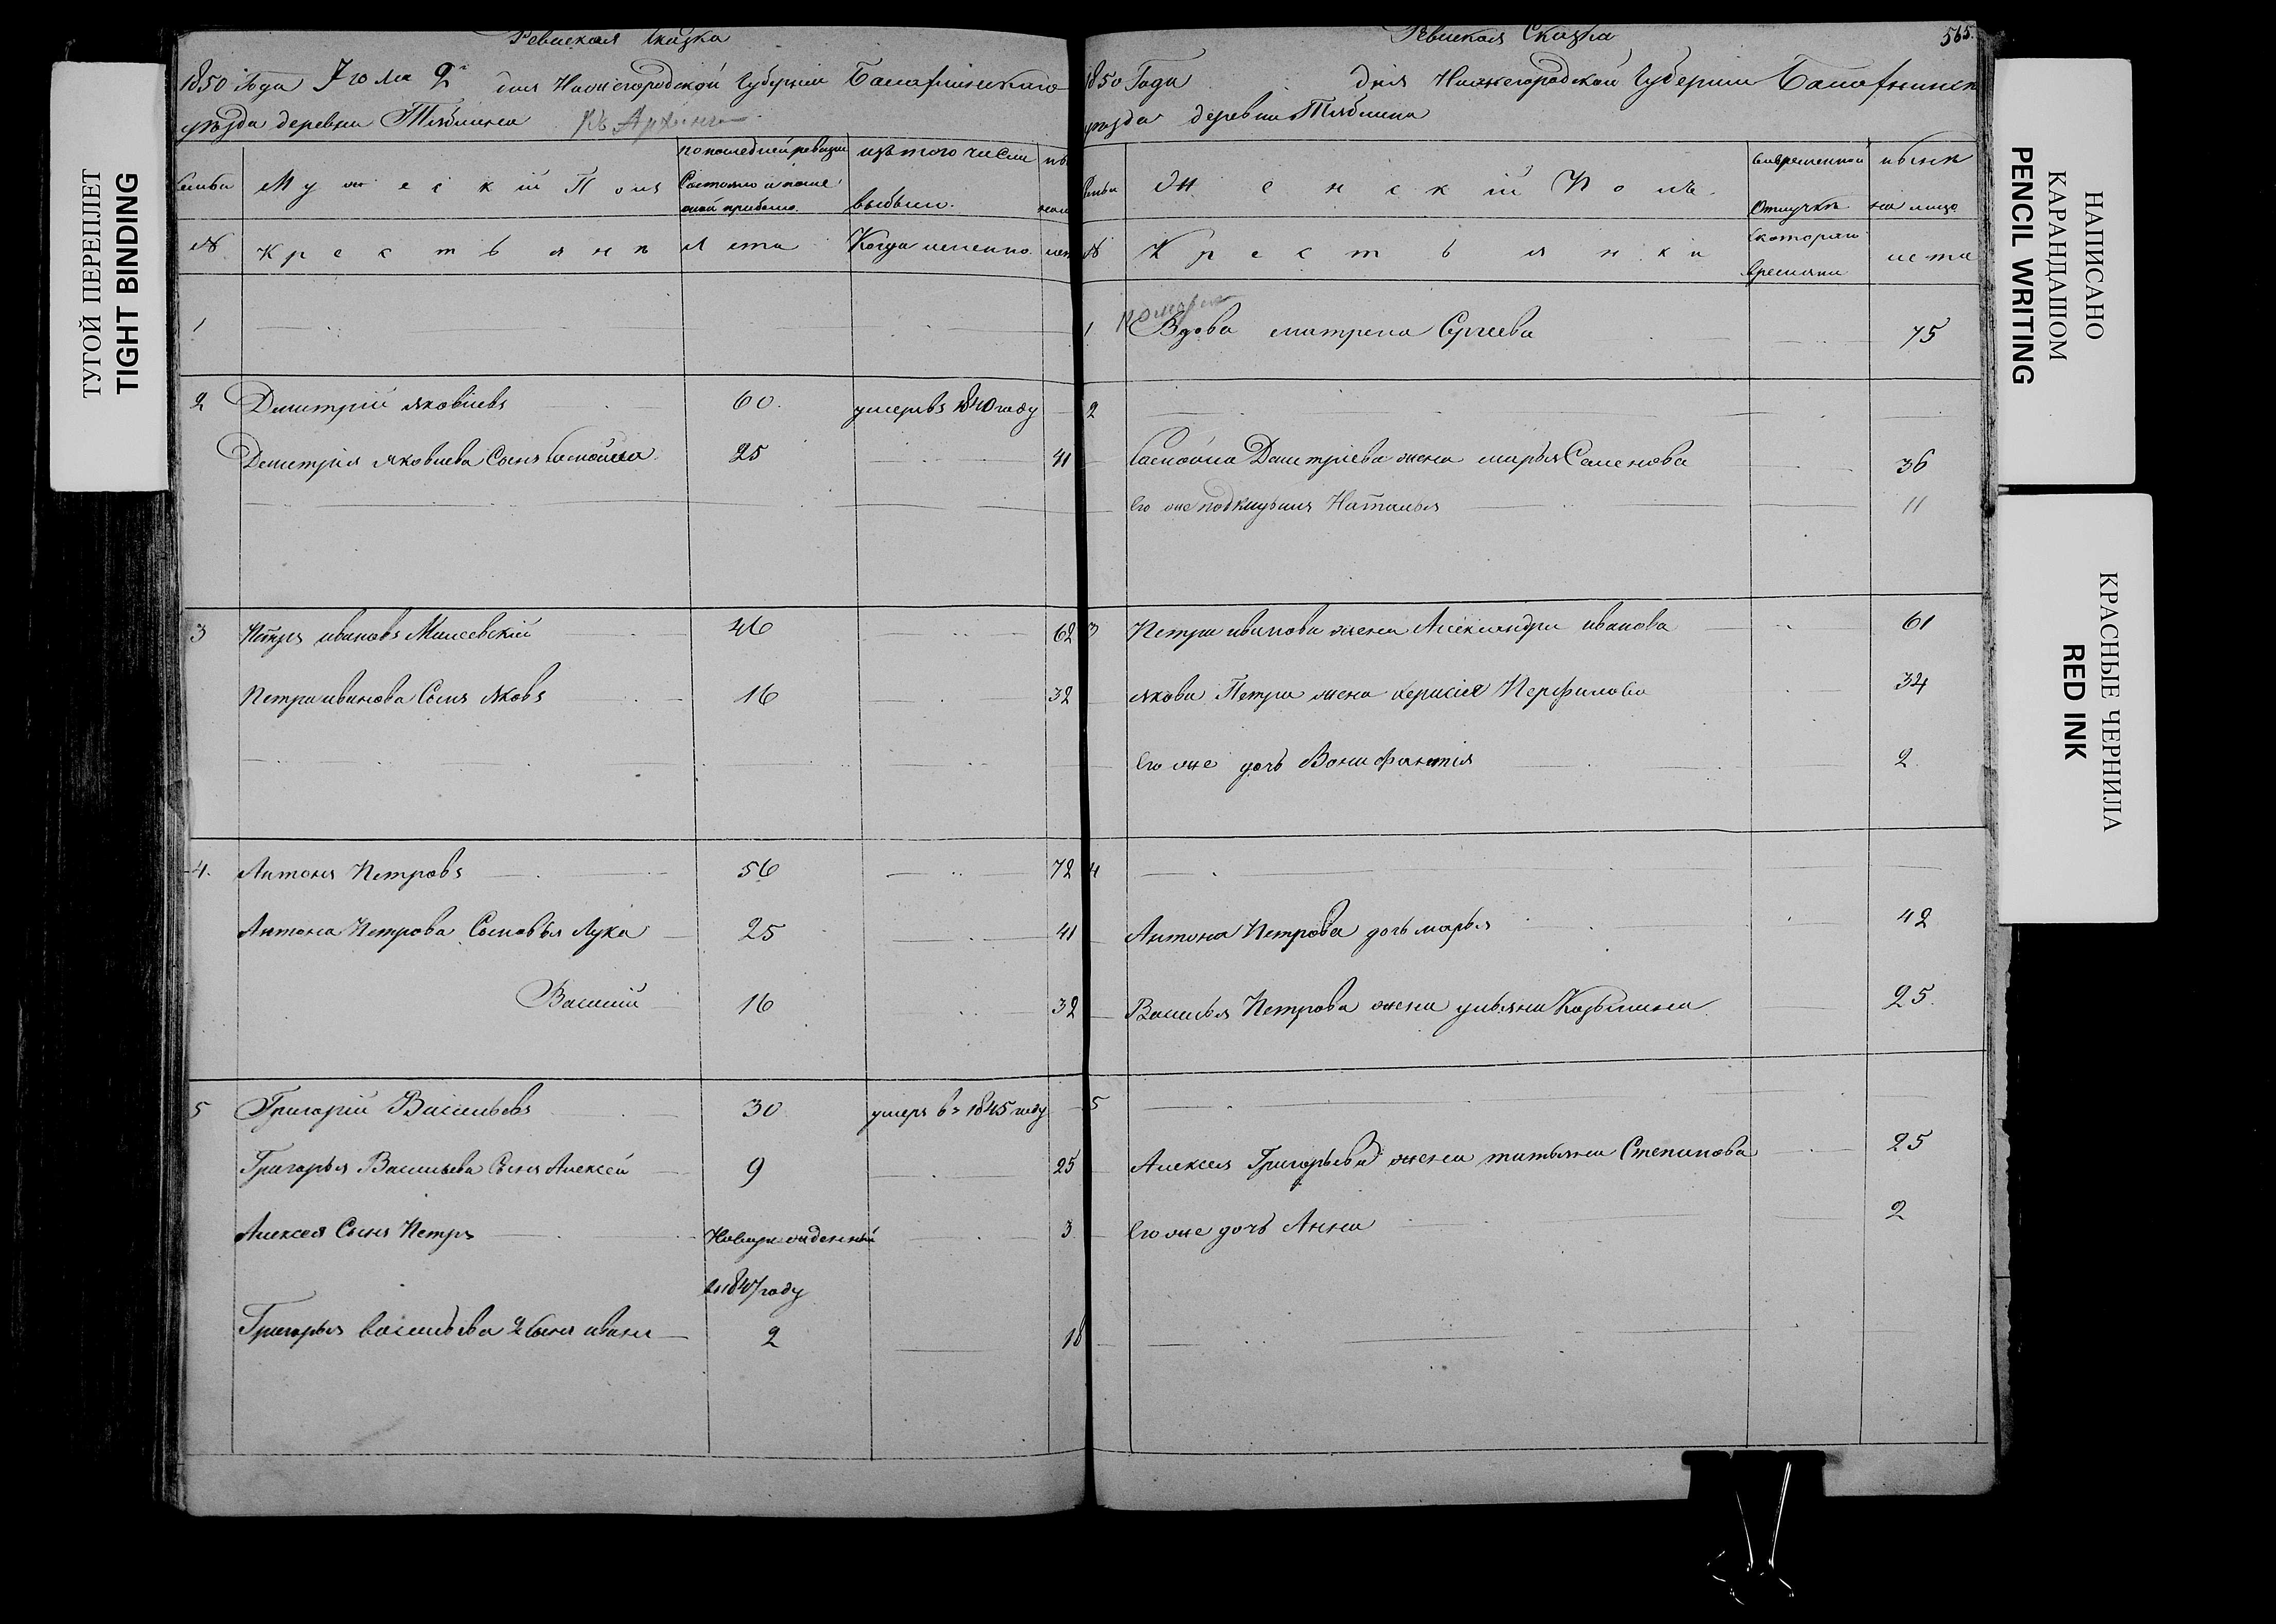 ТУГОЙ ПЕРЕПЛЕТ
TIGHT BINDING
Ревиская Сказка
1850 Года Июля 2 дня Нижегородской Губернии Балахнинскаго
уезда деревни Тяблина
Семьи
Мужескій Полъ
по последней ревизіи
Состояло и после
оной прибыло.
изъ того числа
выбыли.
№
Крестьянъ
лета
Когда именно.
1
2 Дмитрій яковлевъ 60. умеръ въ 1840 году
Дмитрія яковлева Сынъ самойла 25 41
3 Петръ ивановъ Моисевскій 46 62
Петра иванова Сынъ яковъ 16 32
4. Антонъ Петровъ 56 72
Антона Петрова Сыновья Лука 25 41
Василий 16 32
5 Григорій Васильевъ 30 умеръ въ 1845 году
Григорья Васильева Сынъ Алексей 9 25
Алексея Сынъ Петръ Новорожденный 3
въ 1847 году
Григорья васильева 2 Сынъ иванъ 2 18
Ревиская Сказка
565.
1850 Года дня Нижегородской Губернии Балахнинск
уезда деревни Тяблина
Семьи
Женскій Полъ.
во временной
отлучке
ныне
на лицо
№
Крестьянки
с котораго
времяни
лета
1 Вдова матрена Сергеева 75
2
Самойла Дмитріева жена марья Семенова 36
Его же подкидыш Наталья 11
3 Петра иванова жена Александра иванова 61
якова Петра жена Перфилова 34
Его же дочь Вонифантія 2
4
Антона Петрова дочь марья 42
Василья Петрова жена ульяна Козьмина 25.
5
Алексея Григорьева жена татьяна Степанова 25
Его же дочь Анна 2
НАПИСАНО
КАРАНДАШОМ
PENCIL WRITING
КРАСНЫЕ ЧЕРНИЛА
RED INK